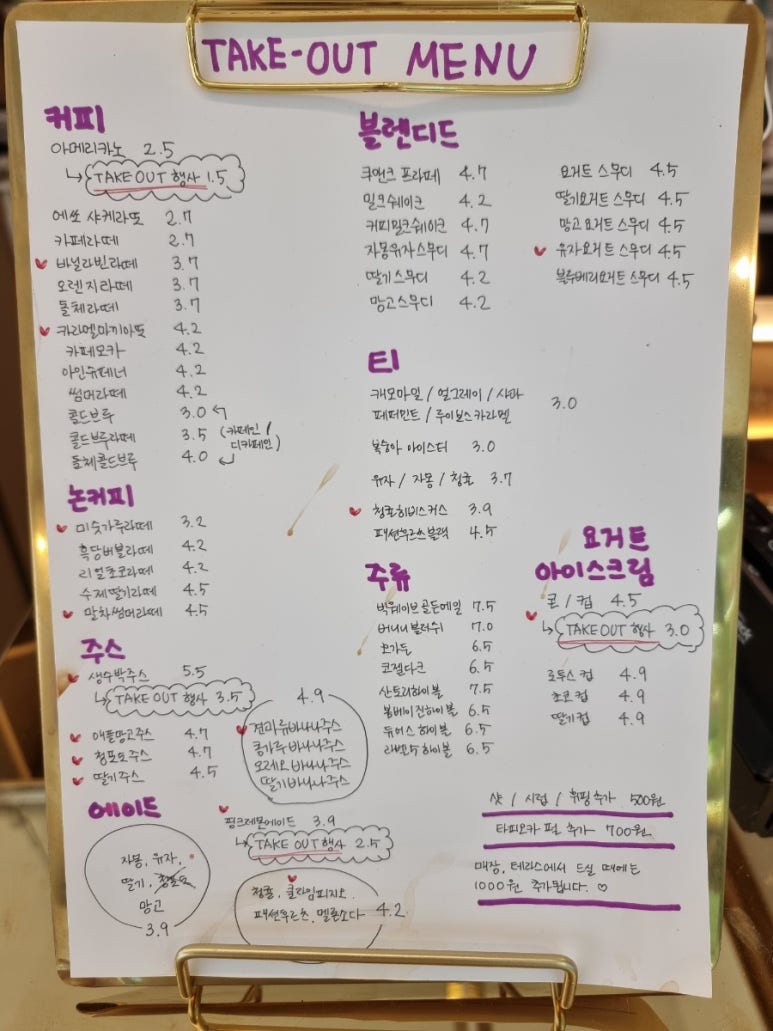 TAKE-OUT MENU
커피
아메리카노 2.5
↳ TAKE OUT 행사 1.5
에쏘 샤케라또 2.7
카페라떼 2.7
바닐라빈라떼 3.7
오렌지라떼 3.7
돌체라떼 3.7
카라멜마끼아또 4.2
카페모카 4.2
아인슈페너 4.2
썸머라떼 4.2
콜드브루 3.0
콜드브루라떼 3.5
돌체콜드브루 4.0
(카페인/
디카페인)
논커피
미숫가루라떼 3.2
흑당버블라떼 4.2
리얼초코라떼 4.2
수제딸기라떼 4.5
말차썸머라떼 4.5
주스
생수박주스 5.5
↳ TAKE OUT 행사 3.5
애플망고주스 4.7
청포도주스 4.7
딸기주스 4.5
4.9
견과류바나나주스
콩가루바나나주스
오레오바나나주스
딸기바나나주스
에이드
자몽, 유자,
딸기, 청포도
망고
3.9
핑크레몬에이드 3.9
↳ TAKE OUT 행사 2.5
청귤, 쿨라임피지오,
패션후르츠, 멜론소다 4.2
블렌디드
쿠앤크 프라페 4.7
밀크쉐이크 4.2
커피밀크쉐이크 4.7
자몽유자스무디 4.7
딸기스무디 4.2
망고스무디 4.2
요거트 스무디 4.5
딸기요거트 스무디 4.5
망고요거트 스무디 4.5
유자요거트 스무디 4.5
블루베리요거트 스무디 4.5
티
캐모마일 / 얼그레이 / 사과
페퍼민트 / 루이보스카라멜
3.0
복숭아 아이스티 3.0
유자 / 자몽 / 청귤 3.7
청귤히비스커스 3.9
패션후르츠블랙 4.5
주류
빅웨이브 골든에일 7.5
버니니블러쉬 7.0
호가든 6.5
코젤다크 6.5
산토리하이볼 7.5
봄베이진하이볼 6.5
듀어스 하이볼 6.5
하이볼 6.5
요거트
아이스크림
콘 / 컵 4.5
↳ TAKE OUT 행사 3.0
로투스 컵 4.9
초코 컵 4.9
딸기컵 4.9
샷 / 시럽 / 휘핑추가 500원
타피오카 펄 추가 700원
매장, 테라스에서 드실 때에는
1000원 추가됩니다. ♡